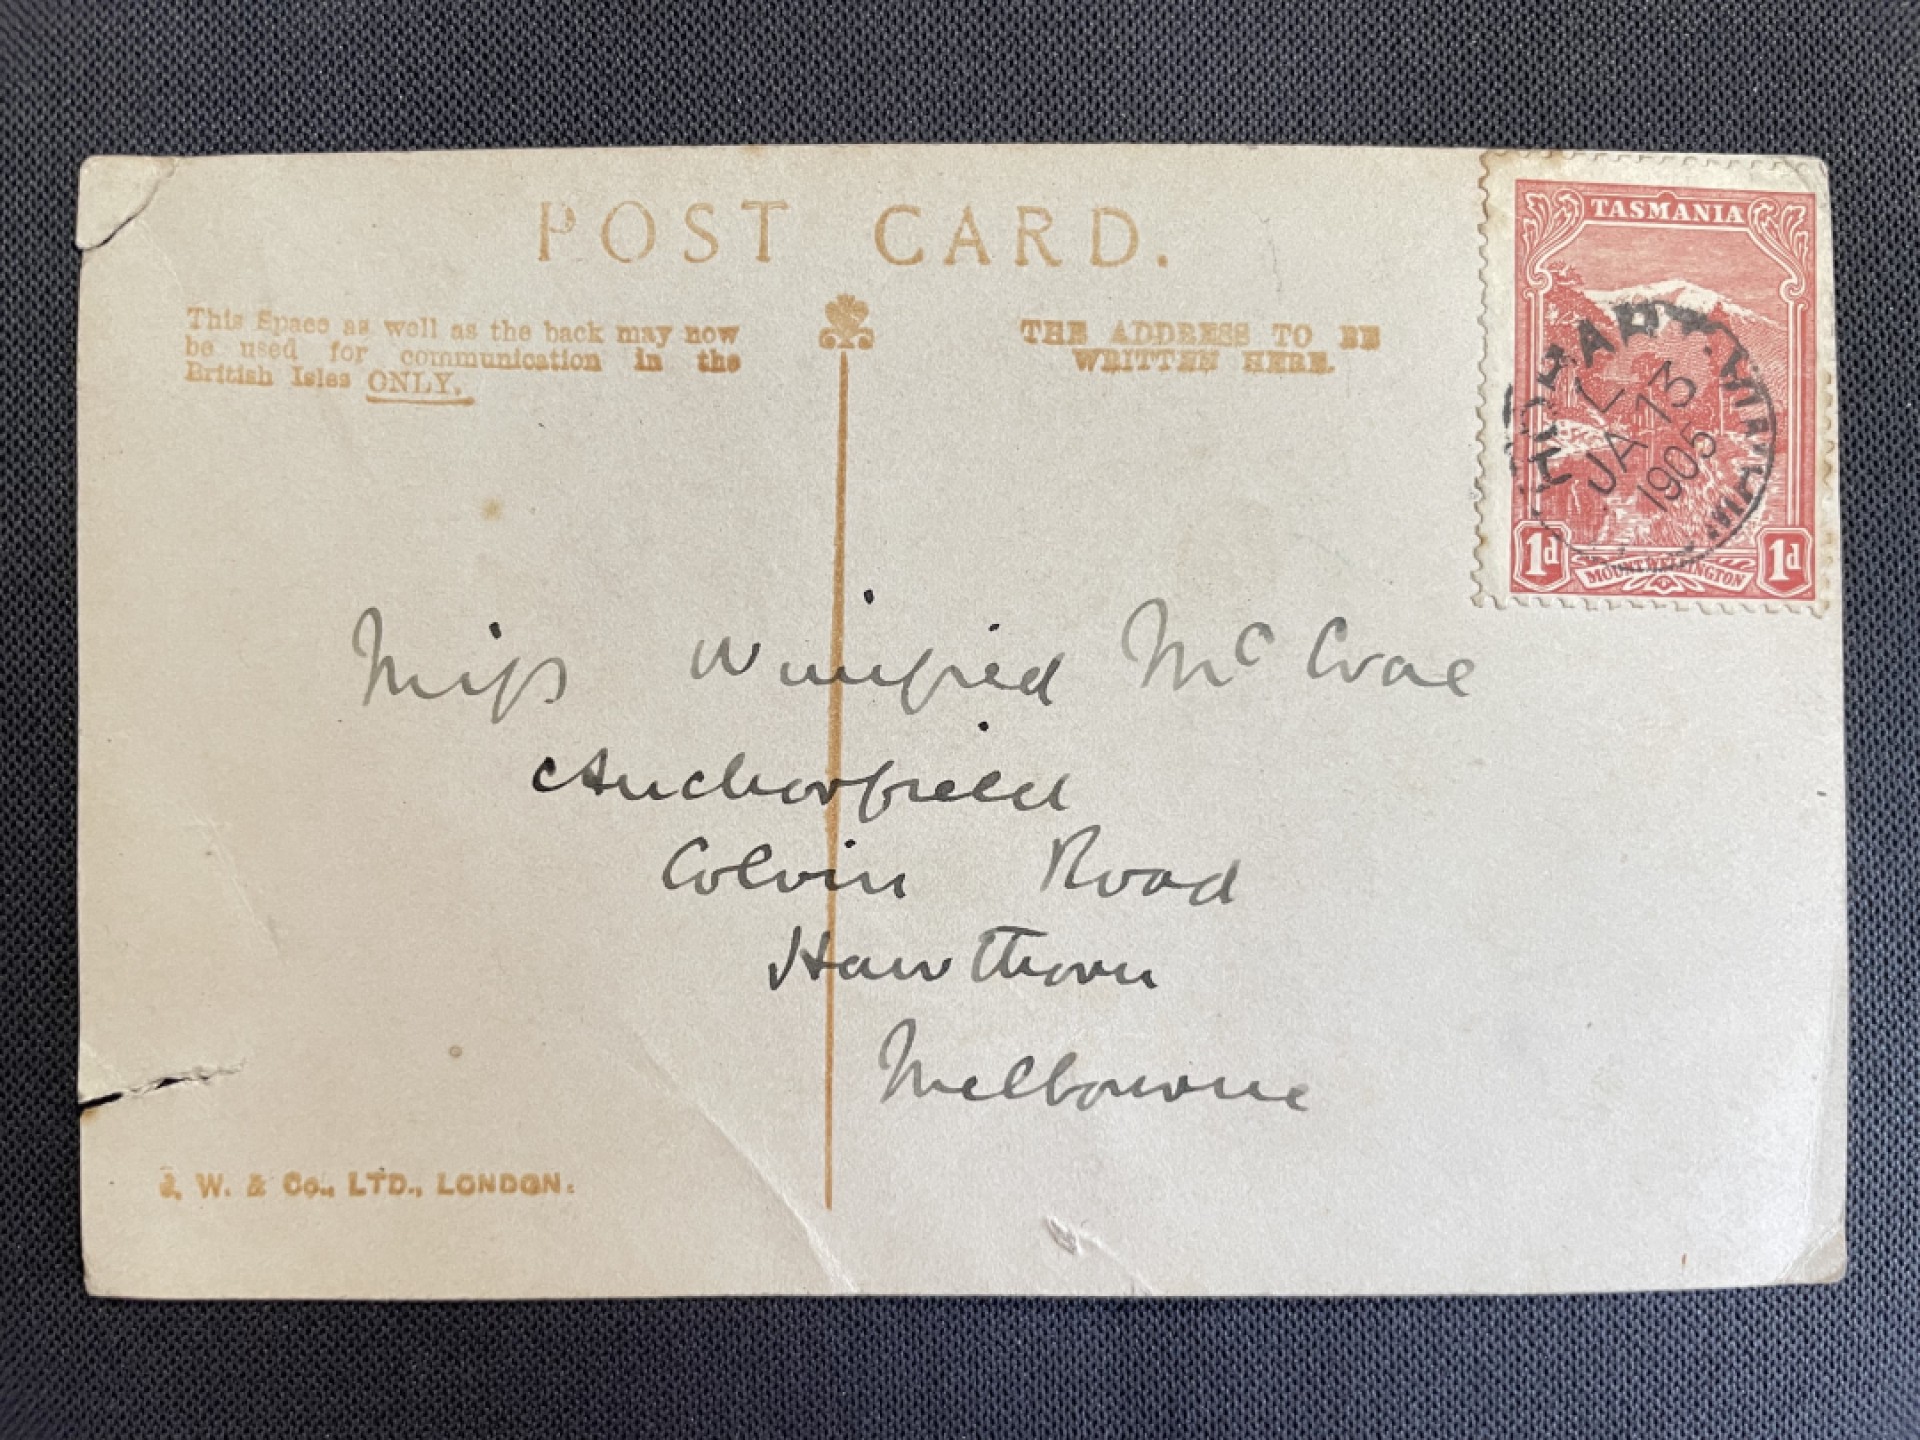 POST CARD.
This Space as well as the back may now
be used for communication in the
British Isles ONLY.
THE ADDRESS TO BE
WRITTEN HERE.
TASMANIA
L
JA 13
1905
1d
MOUNT WELLINGTON
1d
Miss Winifred McCrae
Anchorfield
Colvin Road
Hawthorn
Melbourne
J. W. & Co., LTD., LONDON.